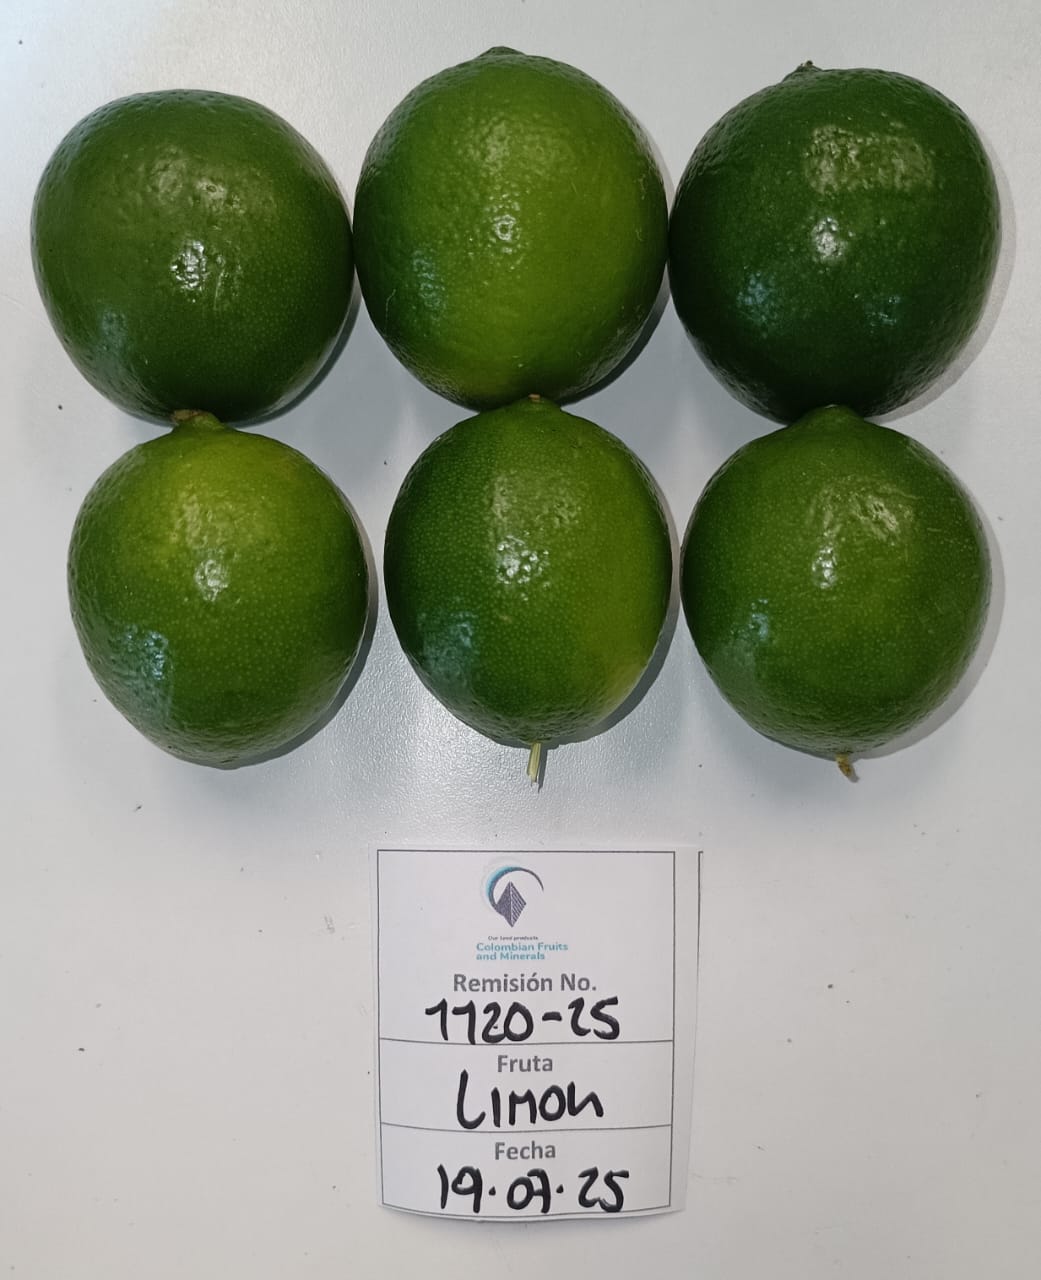 Our land products
Colombian Fruits
and Minerals
Remisión No.
1120-25
Fruta
LIMON
Fecha
19.07.25